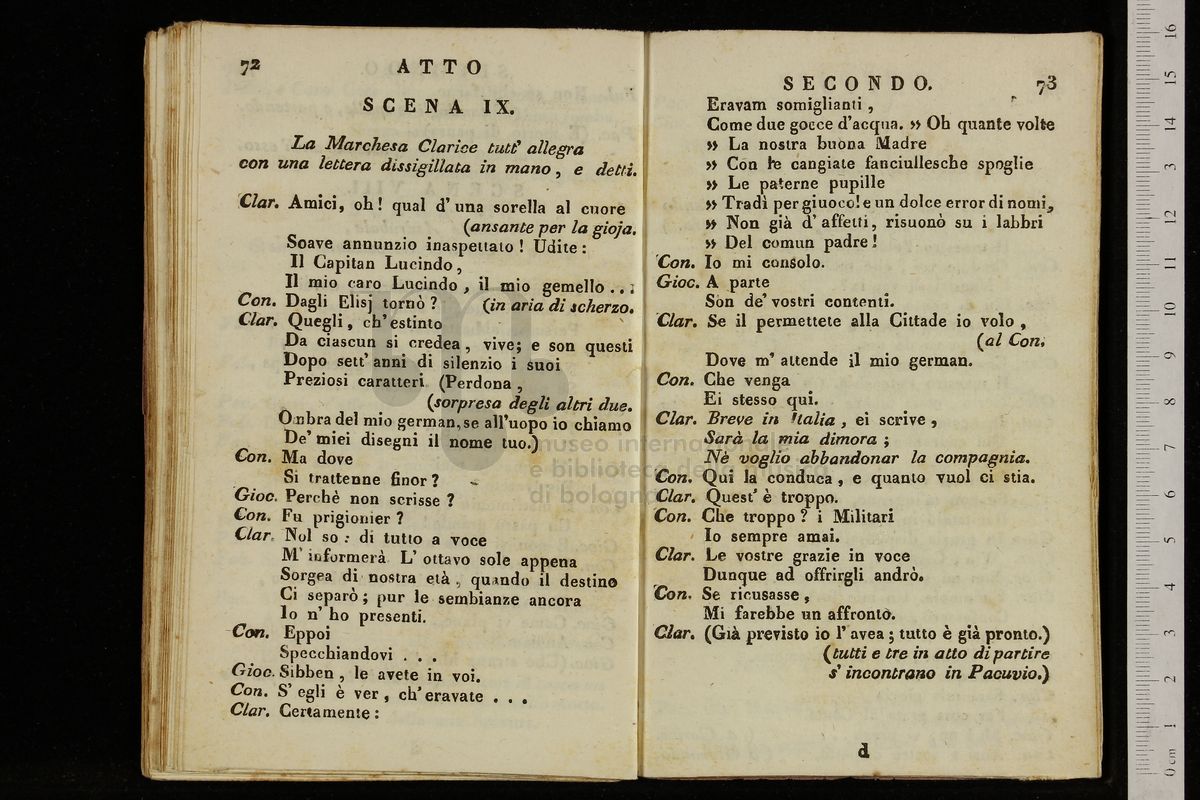 72
ATTO
SCENA IX.
La Marchesa Clarice tutt' allegra
con una lettera dissigillata in mano, e detti.
Clar. Amici, oh! qual d' una sorella al cuore
(ansante per la gioja.
Soave annunzio inaspettato! Udite:
Il Capitan Lucindo,
Il mio caro Lucindo, il mio gemello . . :
Con. Dagli Elisj tornò? (in aria di scherzo.
Clar. Quegli, ch' estinto
Da ciascun si credea, vive; e son questi
Dopo sett' anni di silenzio i suoi
Preziosi caratteri (Perdona,
(sorpresa degli altri due.
Onbra del mio german, se all'uopo io chiamo
De' miei disegni il nome tuo.)
Con. Ma dove
Si trattenne finor?
Gioc. Perchè non scrisse?
Con. Fu prigionier?
Clar. Nol so: di tutto a voce
M' informerà L' ottavo sole appena
Sorgea di nostra età, quando il destino
Ci separò; pur le sembianze ancora
Io n' ho presenti.
Con. Eppoi
Specchiandovi . . .
Gioc. Sibben, le avete in voi.
Con. S' egli è ver, ch' eravate . . .
Clar. Certamente:
SECONDO. 73
Eravam somiglianti,
Come due gocce d'acqua. » Oh quante volte
» La nostra buona Madre
» Con le cangiate fanciullesche spoglie
» Le paterne pupille
» Tradì per giuoco! e un dolce error di nomi,
» Non già d' affetti, risuonò su i labbri
» Del comun padre!
Con. Io mi consolo.
Gioc. A parte
Son de' vostri contenti.
Clar. Se il permettete alla Cittade io volo,
(al Con.
Dove m' attende il mio german.
Con. Che venga
Ei stesso qui.
Clar. Breve in Italia, ei scrive,
Sarà la mia dimora;
Nè voglio abbandonar la compagnia.
Con. Qui la conduca, e quanto vuol ci stia.
Clar. Quest' è troppo.
Con. Che troppo? i Militari
Io sempre amai.
Clar. Le vostre grazie in voce
Dunque ad offrirgli andrò.
Con. Se ricusasse,
Mi farebbe un affronto.
Clar. (Già previsto io l' avea; tutto è già pronto.)
(tutti e tre in atto di partire
s' incontrano in Pacuvio.)
d
museo internazionale
e biblioteca della musica
di bologna
0 cm 1 2 3 4 5 6 7 8 9 10 11 12 13 14 15 16